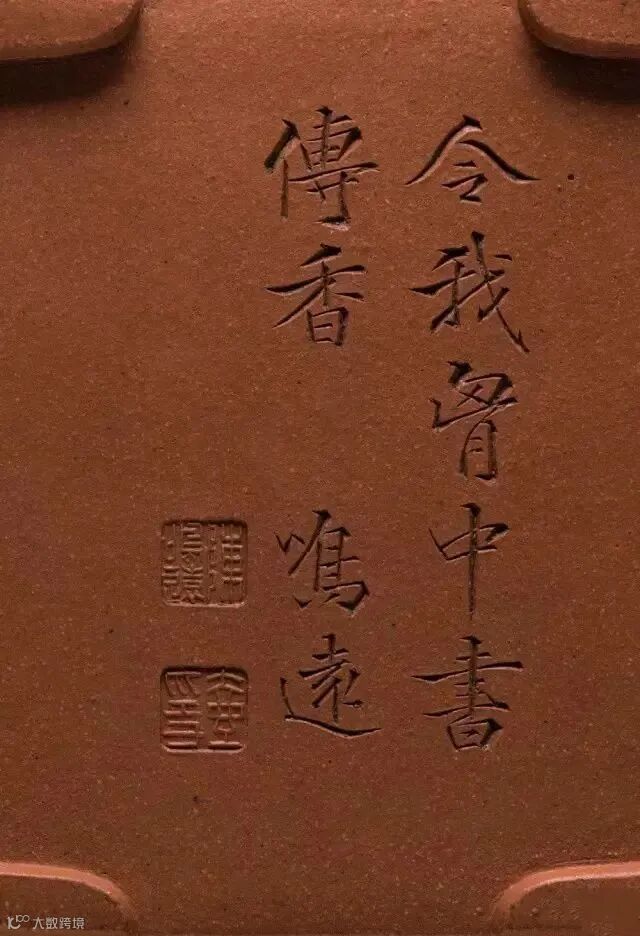 令我胷中書
傳香 鳴遠
大数跨境